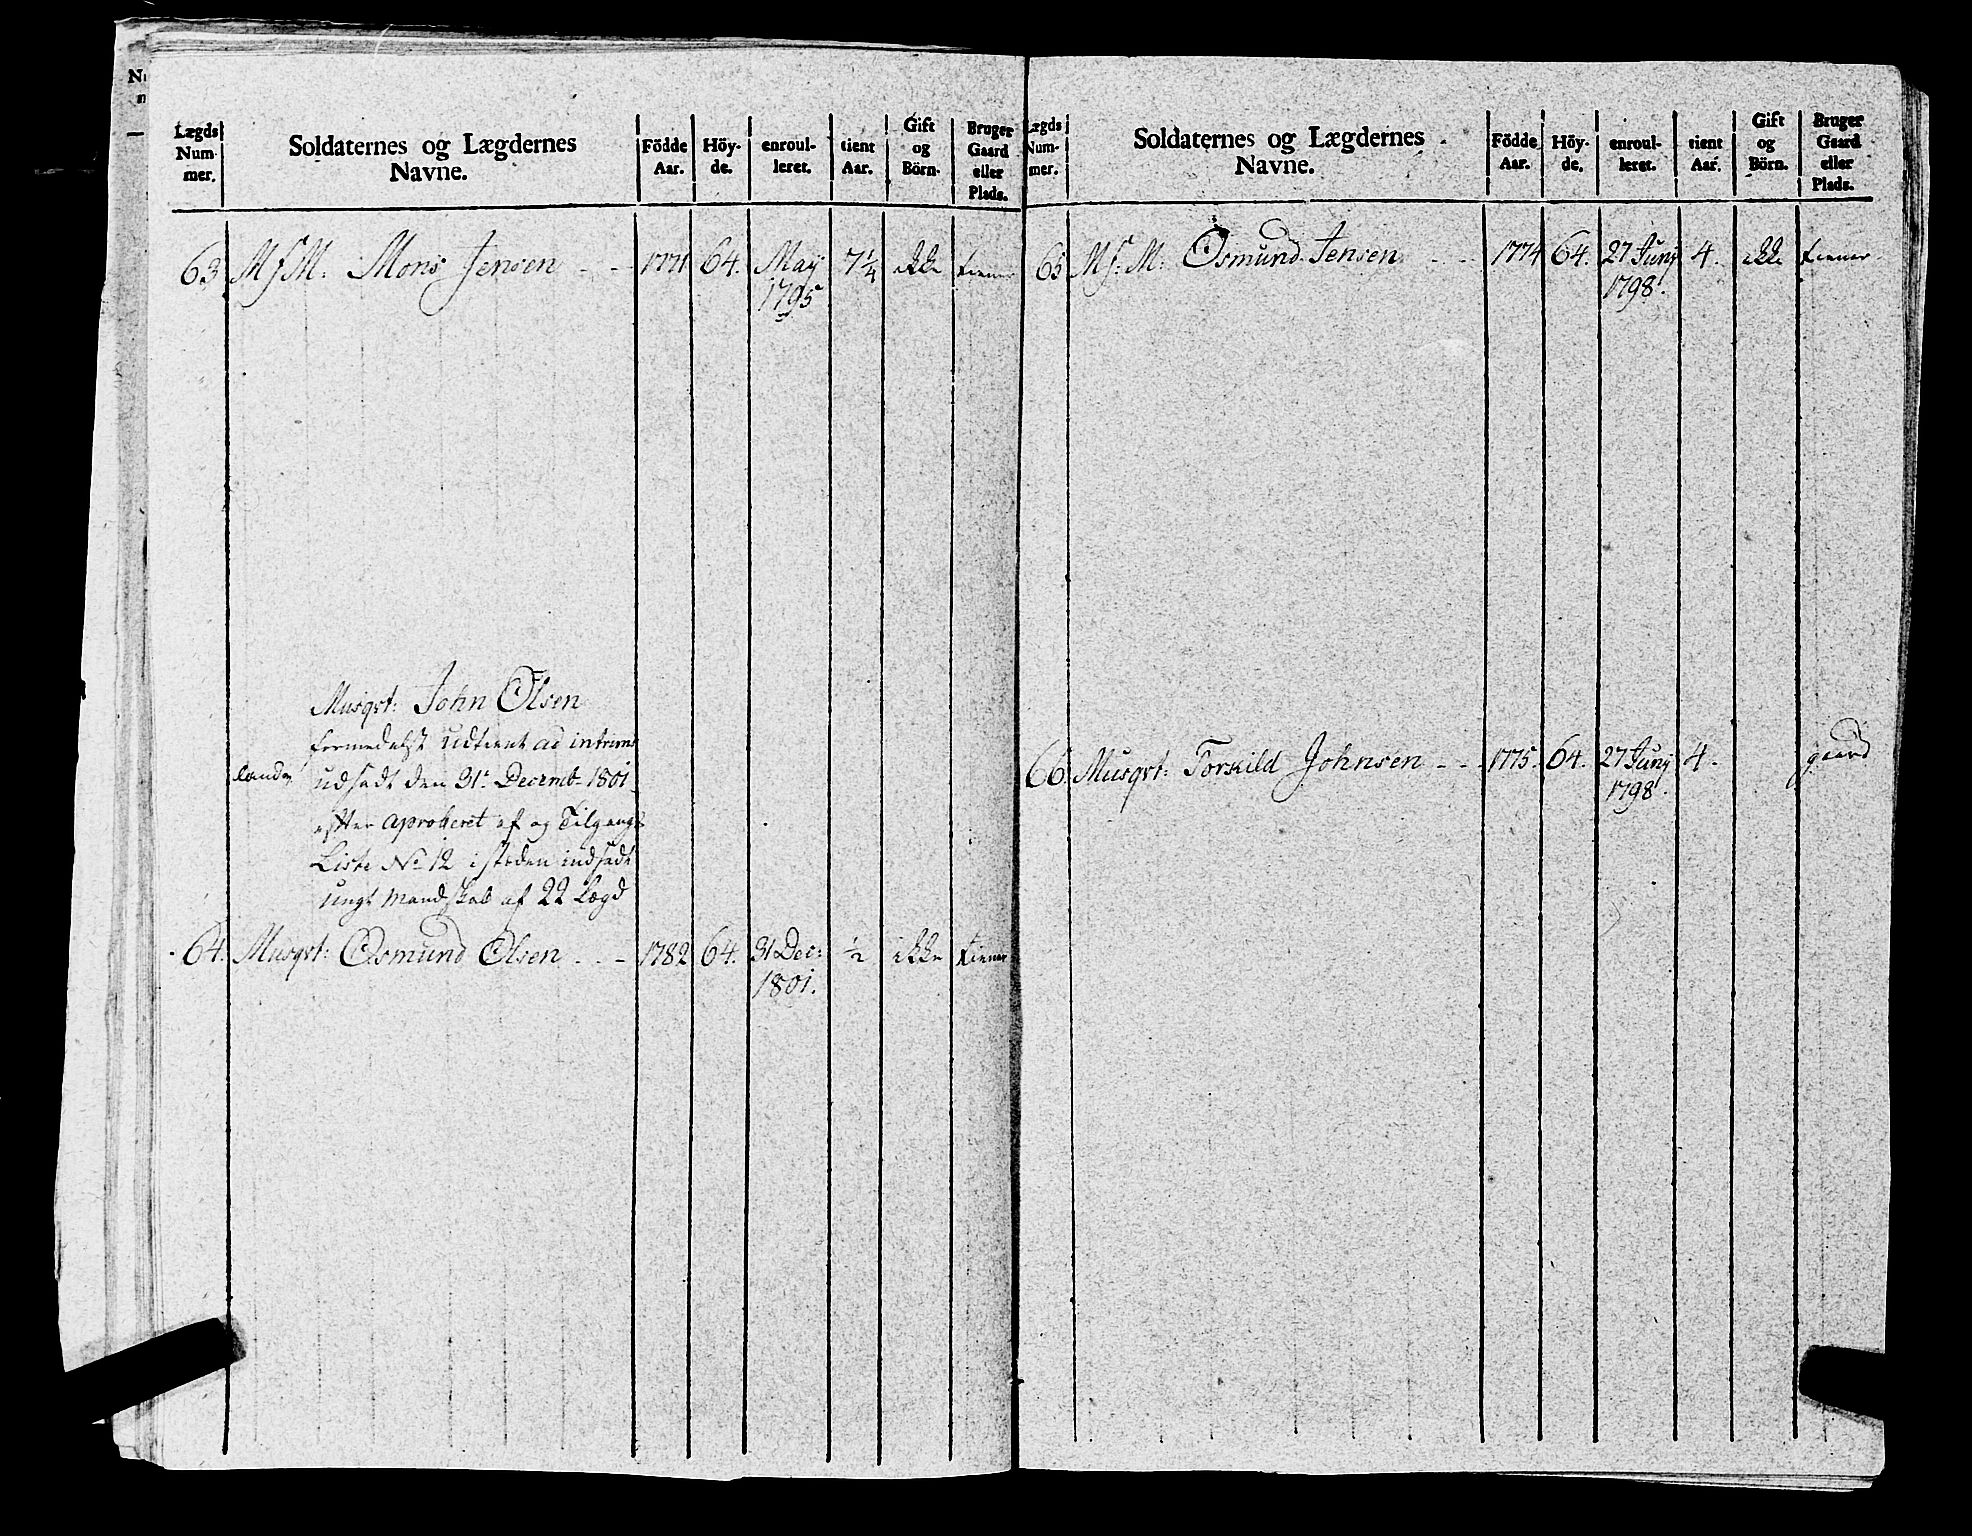 Lægds Num- mer. Soldaternes og Lægdernes Navne. Födde Aar. Höy- de. enroul- leret. tient Aar. Gift og Börn. Bruger Gaard eller Plads.
63 MsM: Mons Jensen - - 1771 64. May 1795 7 1/4 ikke tiener
Musqrt: John Olsen
formedelst udtient ad intrims
landv udsadt den 31te Decemb- 1801
efter aproberet af og Tilgangs
Liste No 12 i steden indsadt
ungt Mandskab af 22 Lægd
64. Musqrt: Osmund Olsen - - - 1782 64. 31 Dec: 1801. 1/2 ikke tiener
Lægds Num- mer. Soldaternes og Lægdernes Navne. Födde Aar. Höy- de. enroul- leret. tient Aar. Gift og Börn. Bruger Gaard eller Plads.
65 Ms: M: Osmund Jensen - - - 1774 64. 27 Junj 1798. 4. ikke tiener
66 Musqrt: Torkild Johnsen - - - 1775. 64. 27 Junj 1798. 4. gaard